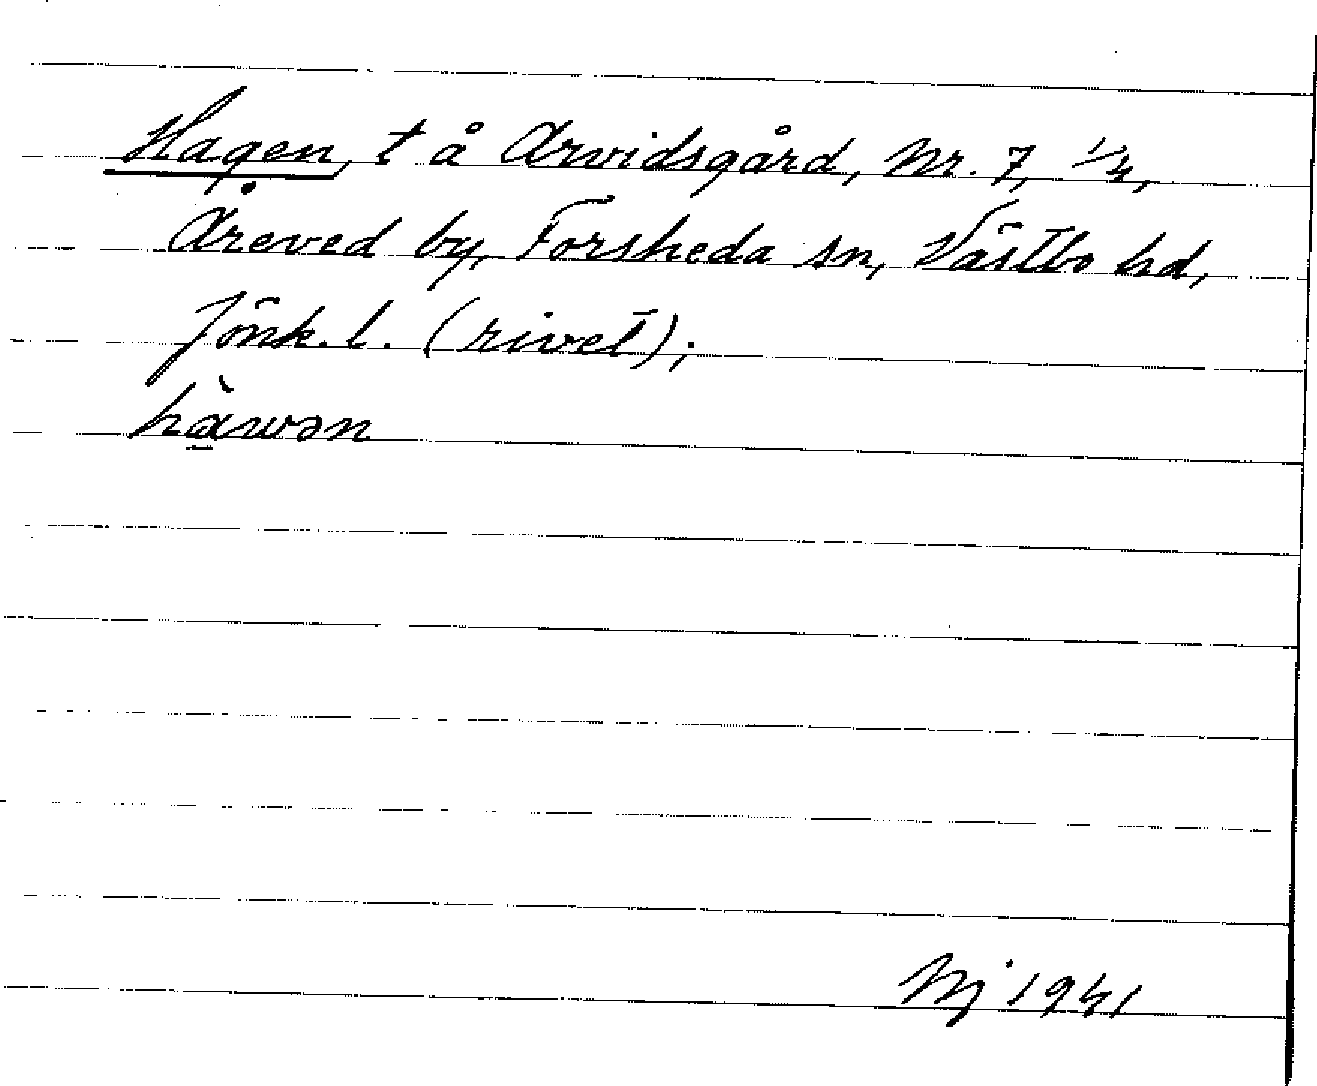 Hagen, t å Arvidsgård, Nr. 7, 1/4,
Åreved by, Forsheda sn, Västbo hd,
Jönk.l. (rivet);
hàwən
Nj 1941